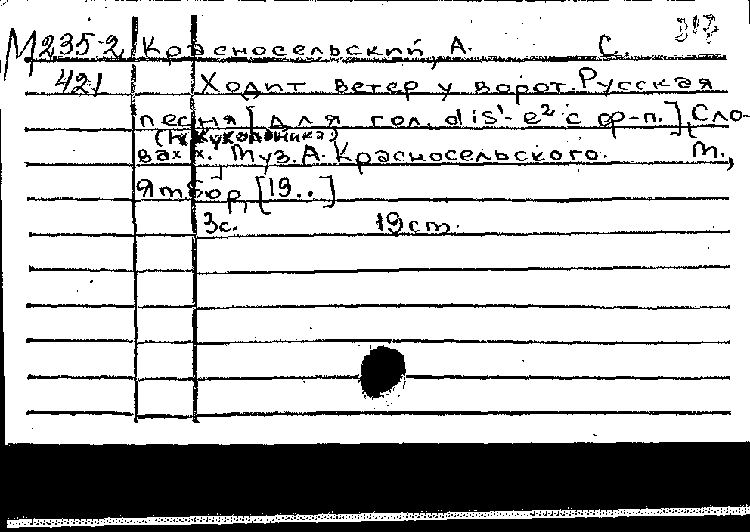 М 235-2 Красносельский, А. С. 317
421 Ходит ветер у ворот. Русская
песня [для гол. dis¹-e² с ф-п.] (Сло-
(Н. Кукольника)
ва х х. Муз. А. Красносельского. М.,
Ямбор, [19..]
3с. 19 ст.